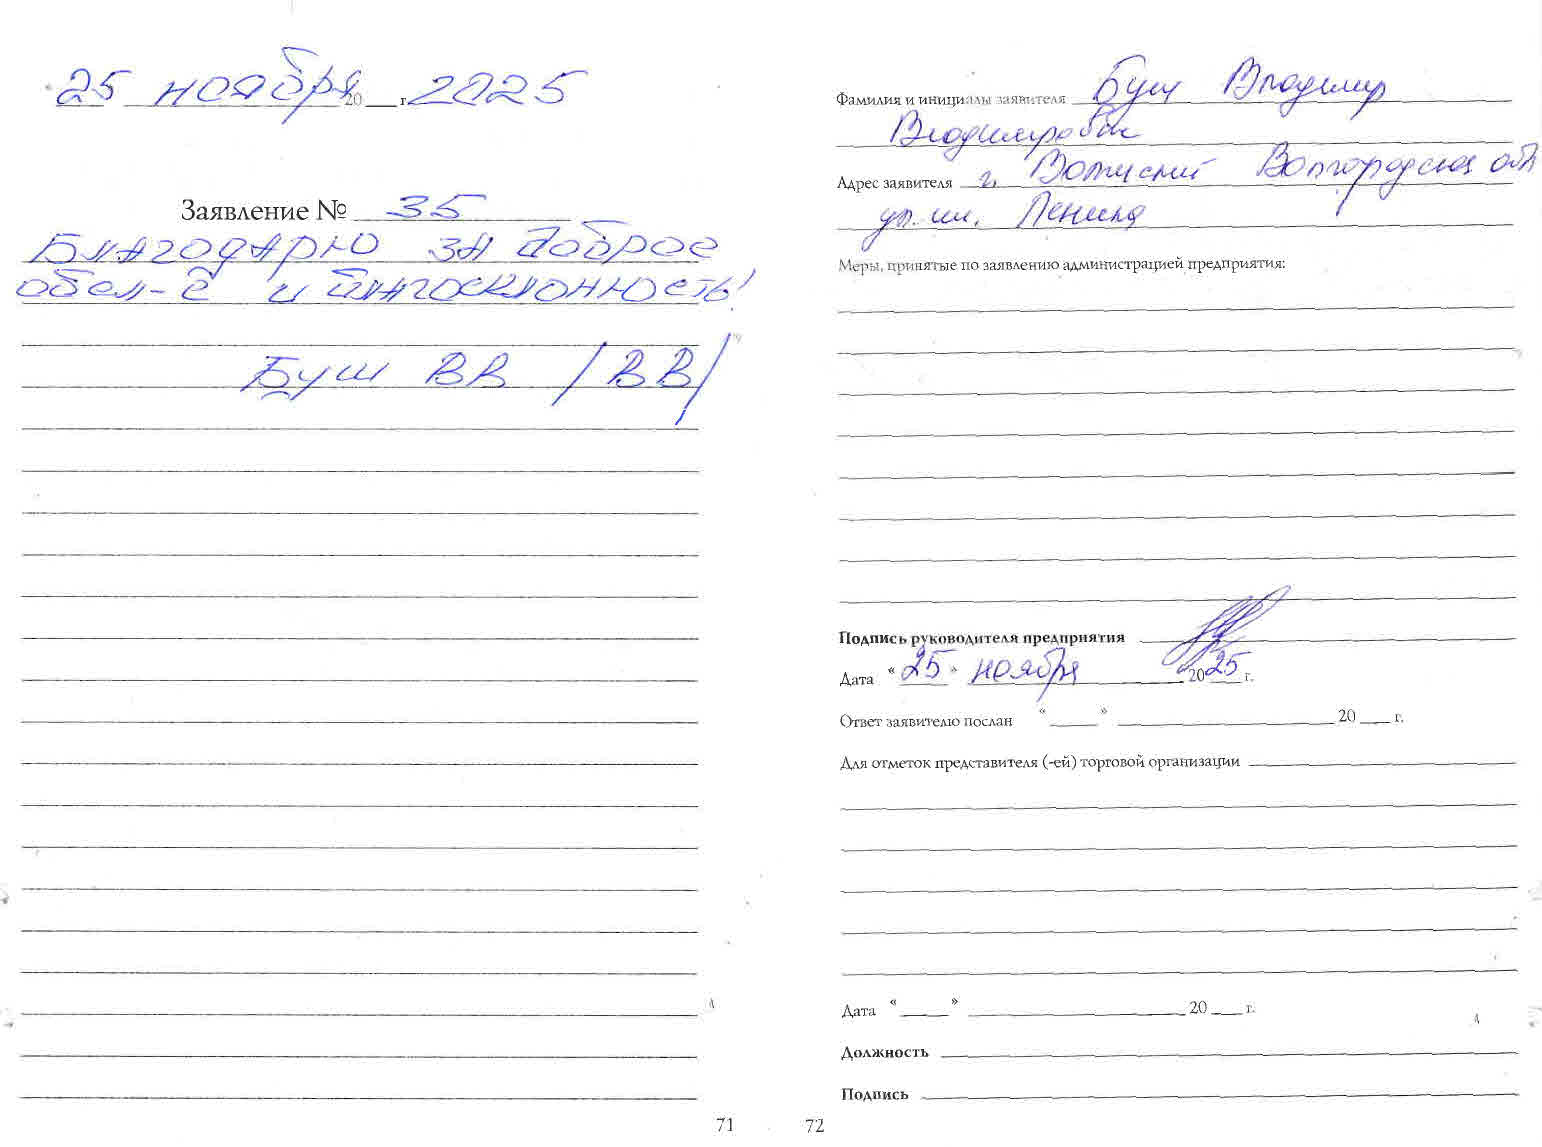 25 ноября 20 г. 2025
Заявление № 35
Благодарю за доброе
обсл-е и благосклонность!
Буш ВВ /ВВ/
71
Фамилия и инициалы заявителя Буш Владимир
Владимирович
Адрес заявителя г. Волжский Волгоградская обл
ул. им. Ленина
Меры, принятые по заявлению администрацией предприятия:
Подпись руководителя предприятия
Дата "25" ноября 2025 г.
Ответ заявителю послан " " 20 г.
Для отметок представителя (-ей) торговой организации
Дата " " 20 г.
Должность
Подпись
72